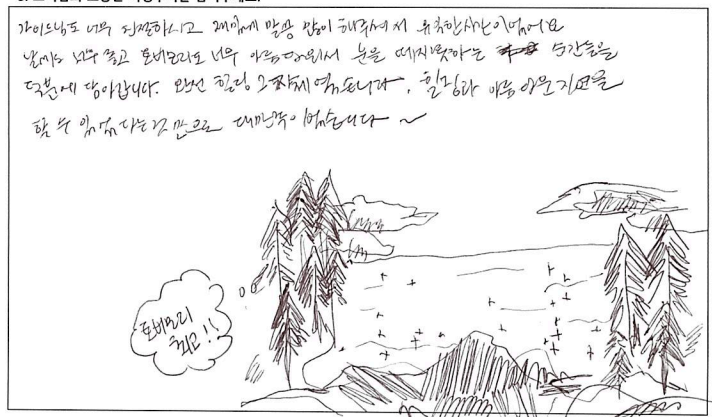 가이드님도 너무 친절하시고 재밌게 말씀 많이 해주셔서 유익한시간이었어요
날씨도 너무 좋고 토버모리도 너무 아름다워서 눈을 떼지못하는 순간들을
덕분에 담아갑니다. 완전 힐링 그자체였습니다, 힐링과 아름다운자연을
할 수 있었다는것 만으로 대만족이었습니다~
토버모리
최고!!